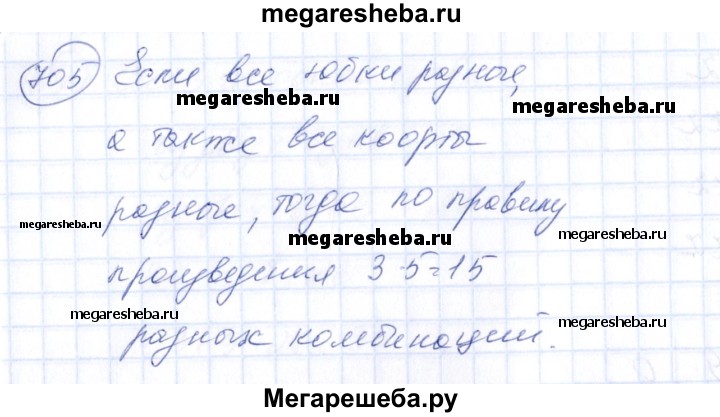 megaresheba.ru
705 Если все юбки разные,
megaresheba.ru megaresheba.ru
а также все кофты
разные, тогда по правилу
megaresheba.ru megaresheba.ru megaresheba.ru
произведения 3·5=15
megaresheba.ru megaresheba.ru
разных комбинаций.
Мегарешеба.ру